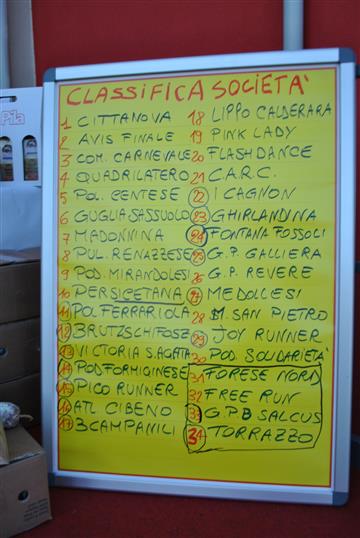 Pila
CLASSIFICA SOCIETA'
1 CITTANOVA
2 AVIS FINALE
3 COM. CARNEVALE
4 QUADRILATERO
5 POL. CENTESE
6 GUGLIA SASSUOLO
7 MADONNINA
8 PUL. RENAZZESE
9 POD. MIRANDOLESI
10 PERSICETANA
11 POL FERRARIOLA
12 BRUTZSCHIFOSZ
13 VICTORIA S. AGATA
14 POD FORMIGINESE
15 PICO RUNNER
16 ATL CIBENO
17 3 CAMPANILI
18 LIPPO CALDERARA
19 PINK LADY
20 FLASHDANCE
21 C.A.R.C.
22 I CAGNON
23 GHIRLANDINA
24 FONTANA FOSSOLI
25 G.P. GALLIERA
26 G.P. REVERE
27 MEDOLLESI
28 M. SAN PIETRO
29 JOY RUNNER
30 POD. SOLIDARIETA'
31 FORESE NORD
32 FREE RUN
33 G.P.B SALCUS
34 TORRAZZO